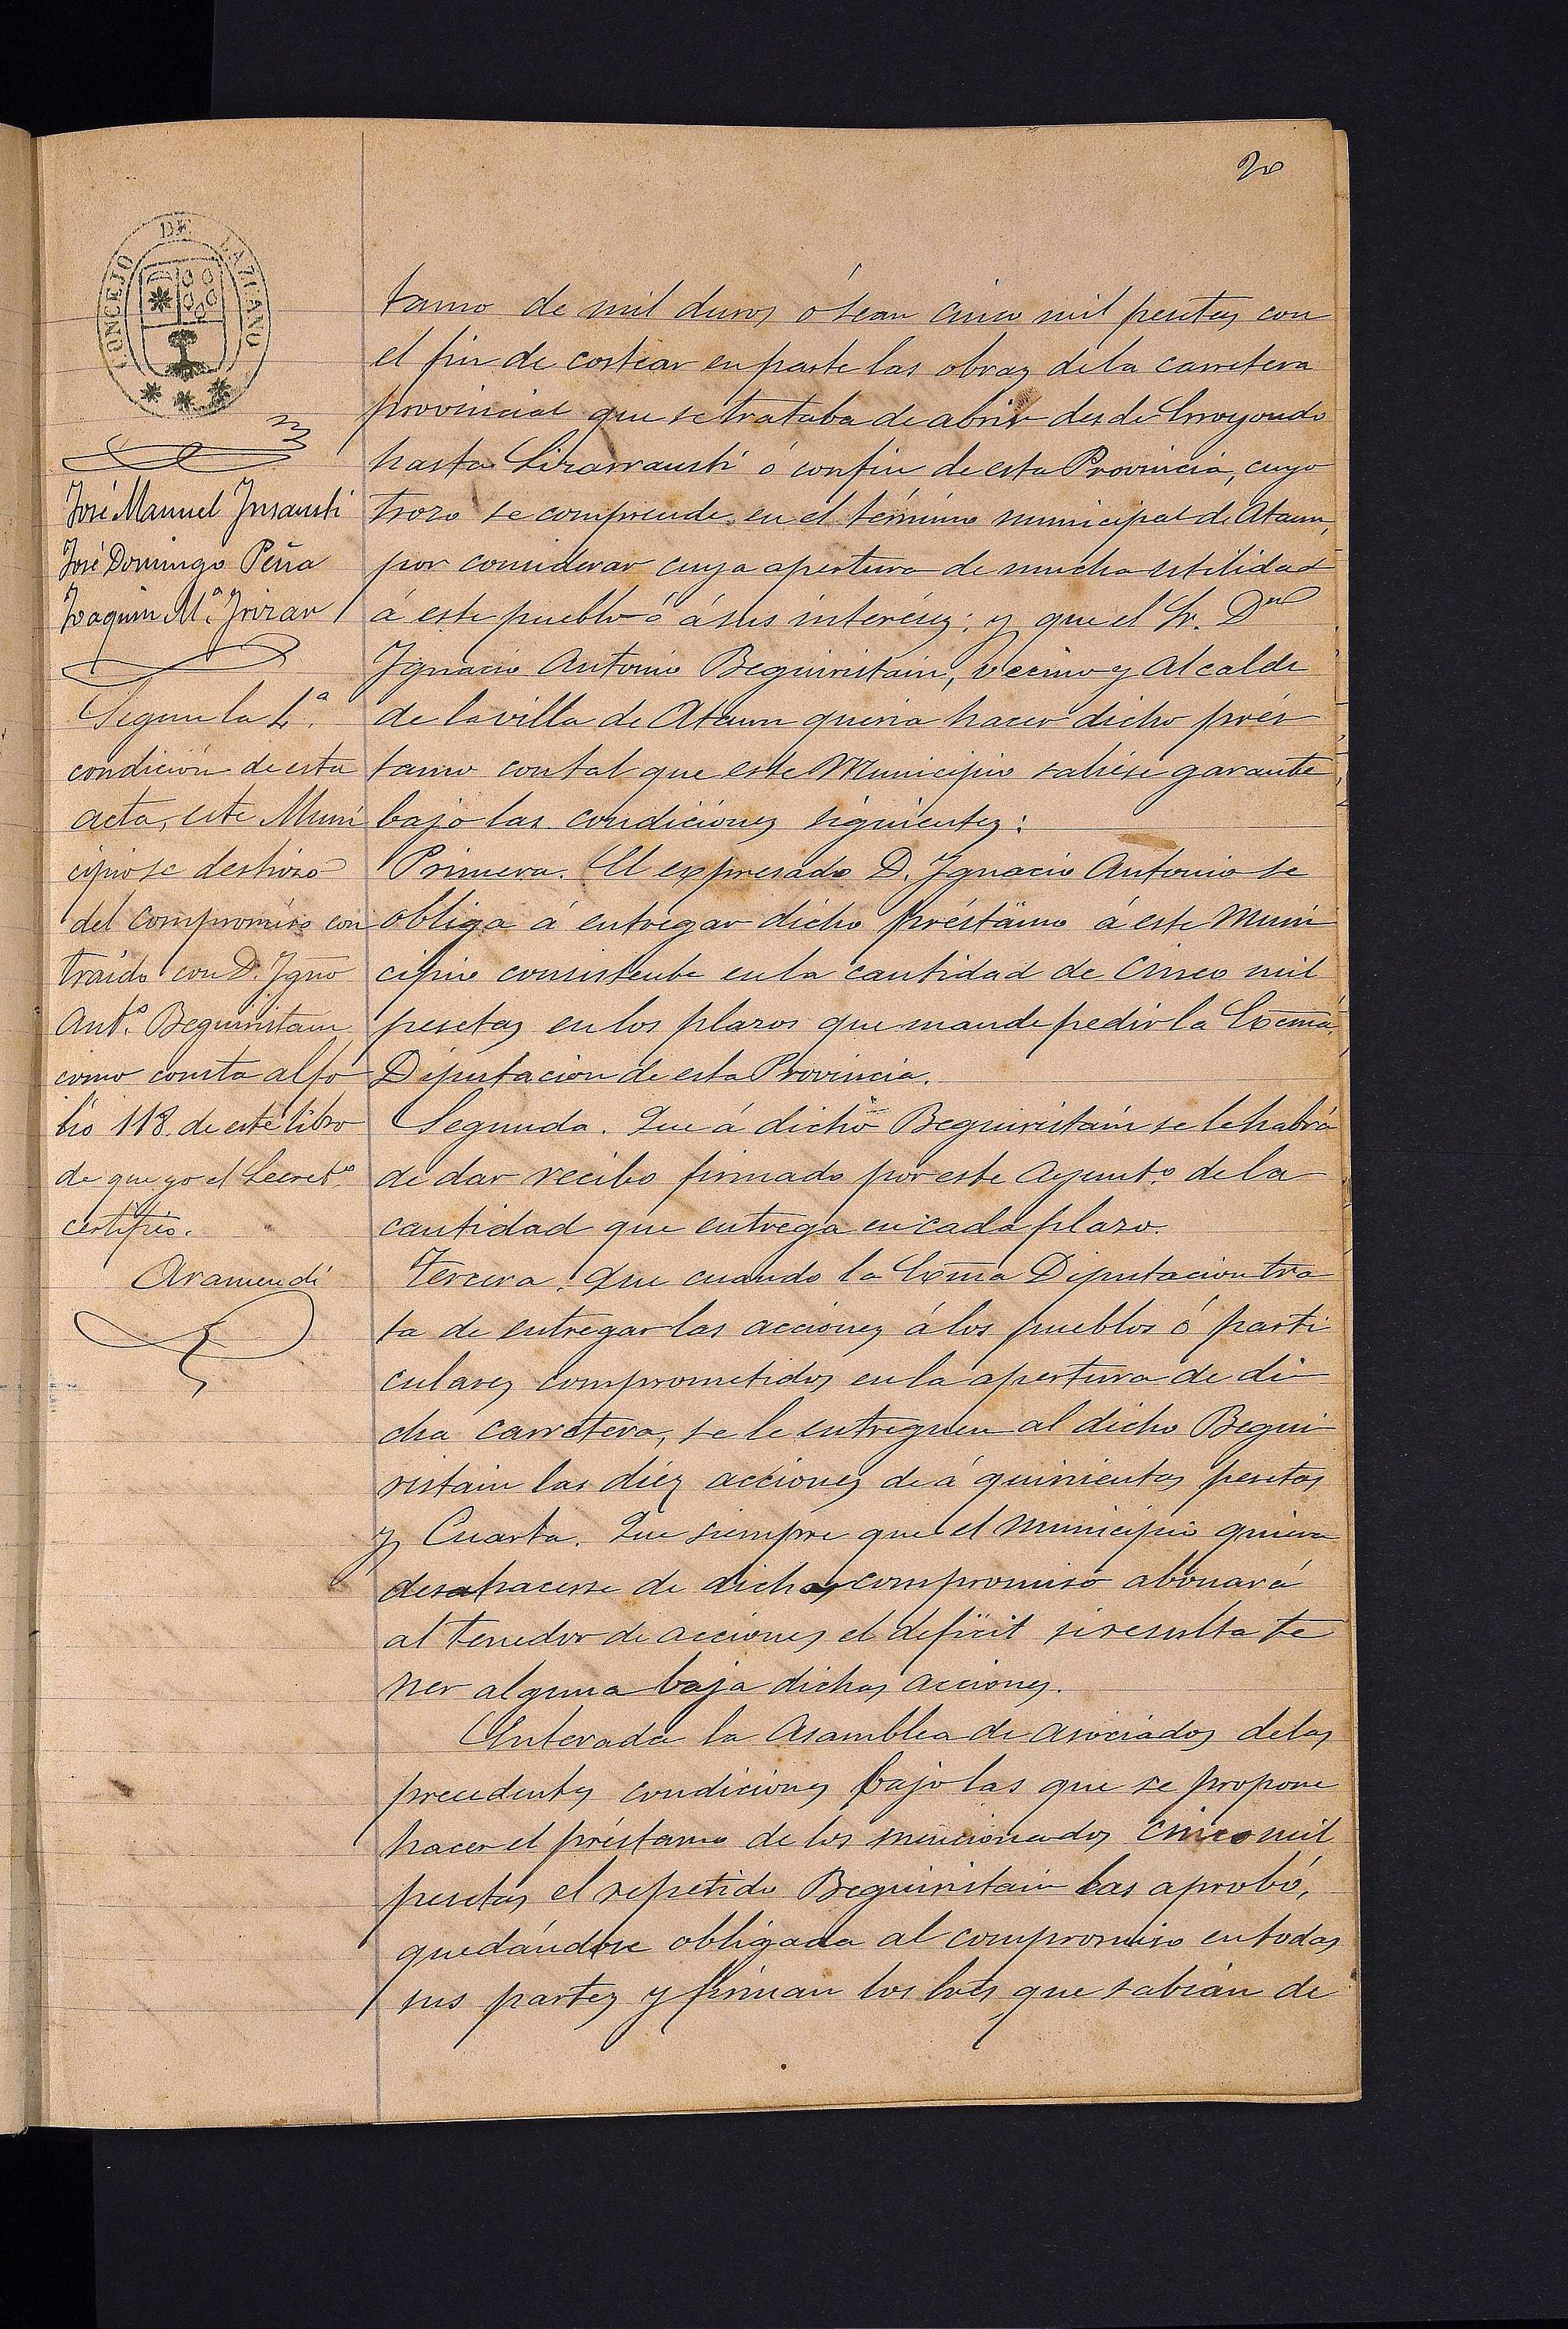 20
CONCEJO DE LAZCANO
José Manuel Insausti
José Domingo Peña
Joaquin M.ª Irizar
Segun la 4.ª
condición de esta
acta, este Muni
cipio se deshizo
del compromiso con
traido con D. Igno
Ant.º Beguiristain,
como consta al fo
lio 118 de este libro
de que yo el Secret.º
certifico.
Aramendi
tamo de mil duros ó sean cinco mil pesetas con
el fin de costear en parte las obras de la carretera
provincial que se trataba de abrir desde
hasta Lizarrausti ó confin de esta Provincia, cuyo
trozo se comprende en el término municipal de Ataun,
por considerar cuya apertura de mucha utilidad
á este pueblo ó á sus interéses; y que el Sr. Dn
Ignacio Antonio Beguiristain, vecino y Alcalde
de la villa de Ataun queria hacer dicho prés
tamo con tal que este Municipio saliese garante
bajo las condiciónes siguientes:
Primera. El expresado D. Ignacio Antonio se
obliga á entregar dicho préstamo á este Muni
cipio consistente en la cantidad de cinco mil
pesetas en los plazos que mande pedir la Excma.
Diputacion de esta Provincia.
Segunda. Que á dicho Beguiristain se le habrá
de dar recibo firmado por este Ayunt.º de la
cantidad que entrega en cada plazo.
Tercera. Que cuando la Excma Diputacion tra
ta de entregar las acciónes á los pueblos ó parti
culares comprometidos en la apertura de di
cha carretera, se le entreguen al dicho Begui
ristain las diéz acciónes de á quinientas pesetas
y Cuarta. Que siempre que el Municipio quiera
desahacerse de dicho compromiso abonará
al tenedor de acciones el deficit si resulta te
ner alguna baja dichas acciones.
Enterada la Asamblea de asociados de las
precedentes condiciones bajo las que se propone
hacer el préstamo de los mencionados cinco mil
pesetas el repetido Beguiristain las aprobó,
quedándose obligada al compromiso en todas
sus partes y firman los que sabian de